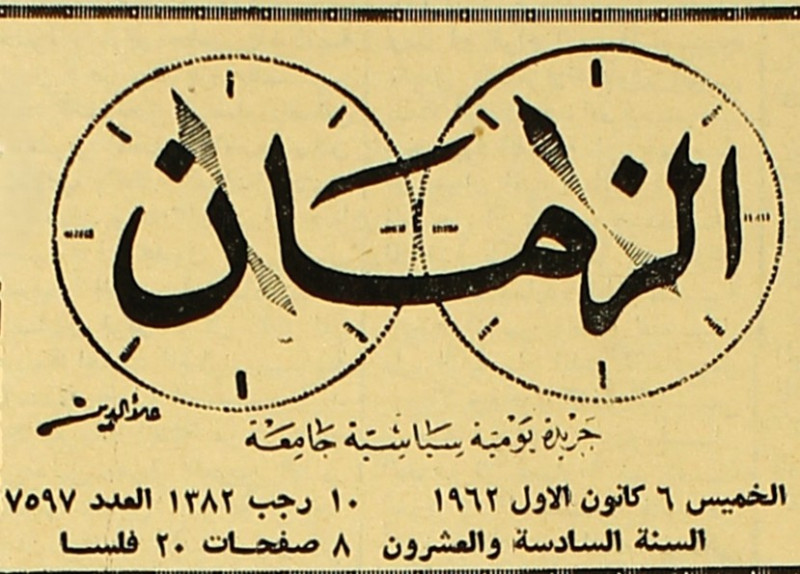 الزمان
علاء الدين
جريدة يومية سياسية جامعة
الخميس ٦ كانون الاول ١٩٦٢ ١٠ رجب ١٣٨٢ العدد ٧٥٩٧
السنة السادسة والعشرون ٨ صفحات ٢٠ فلسا